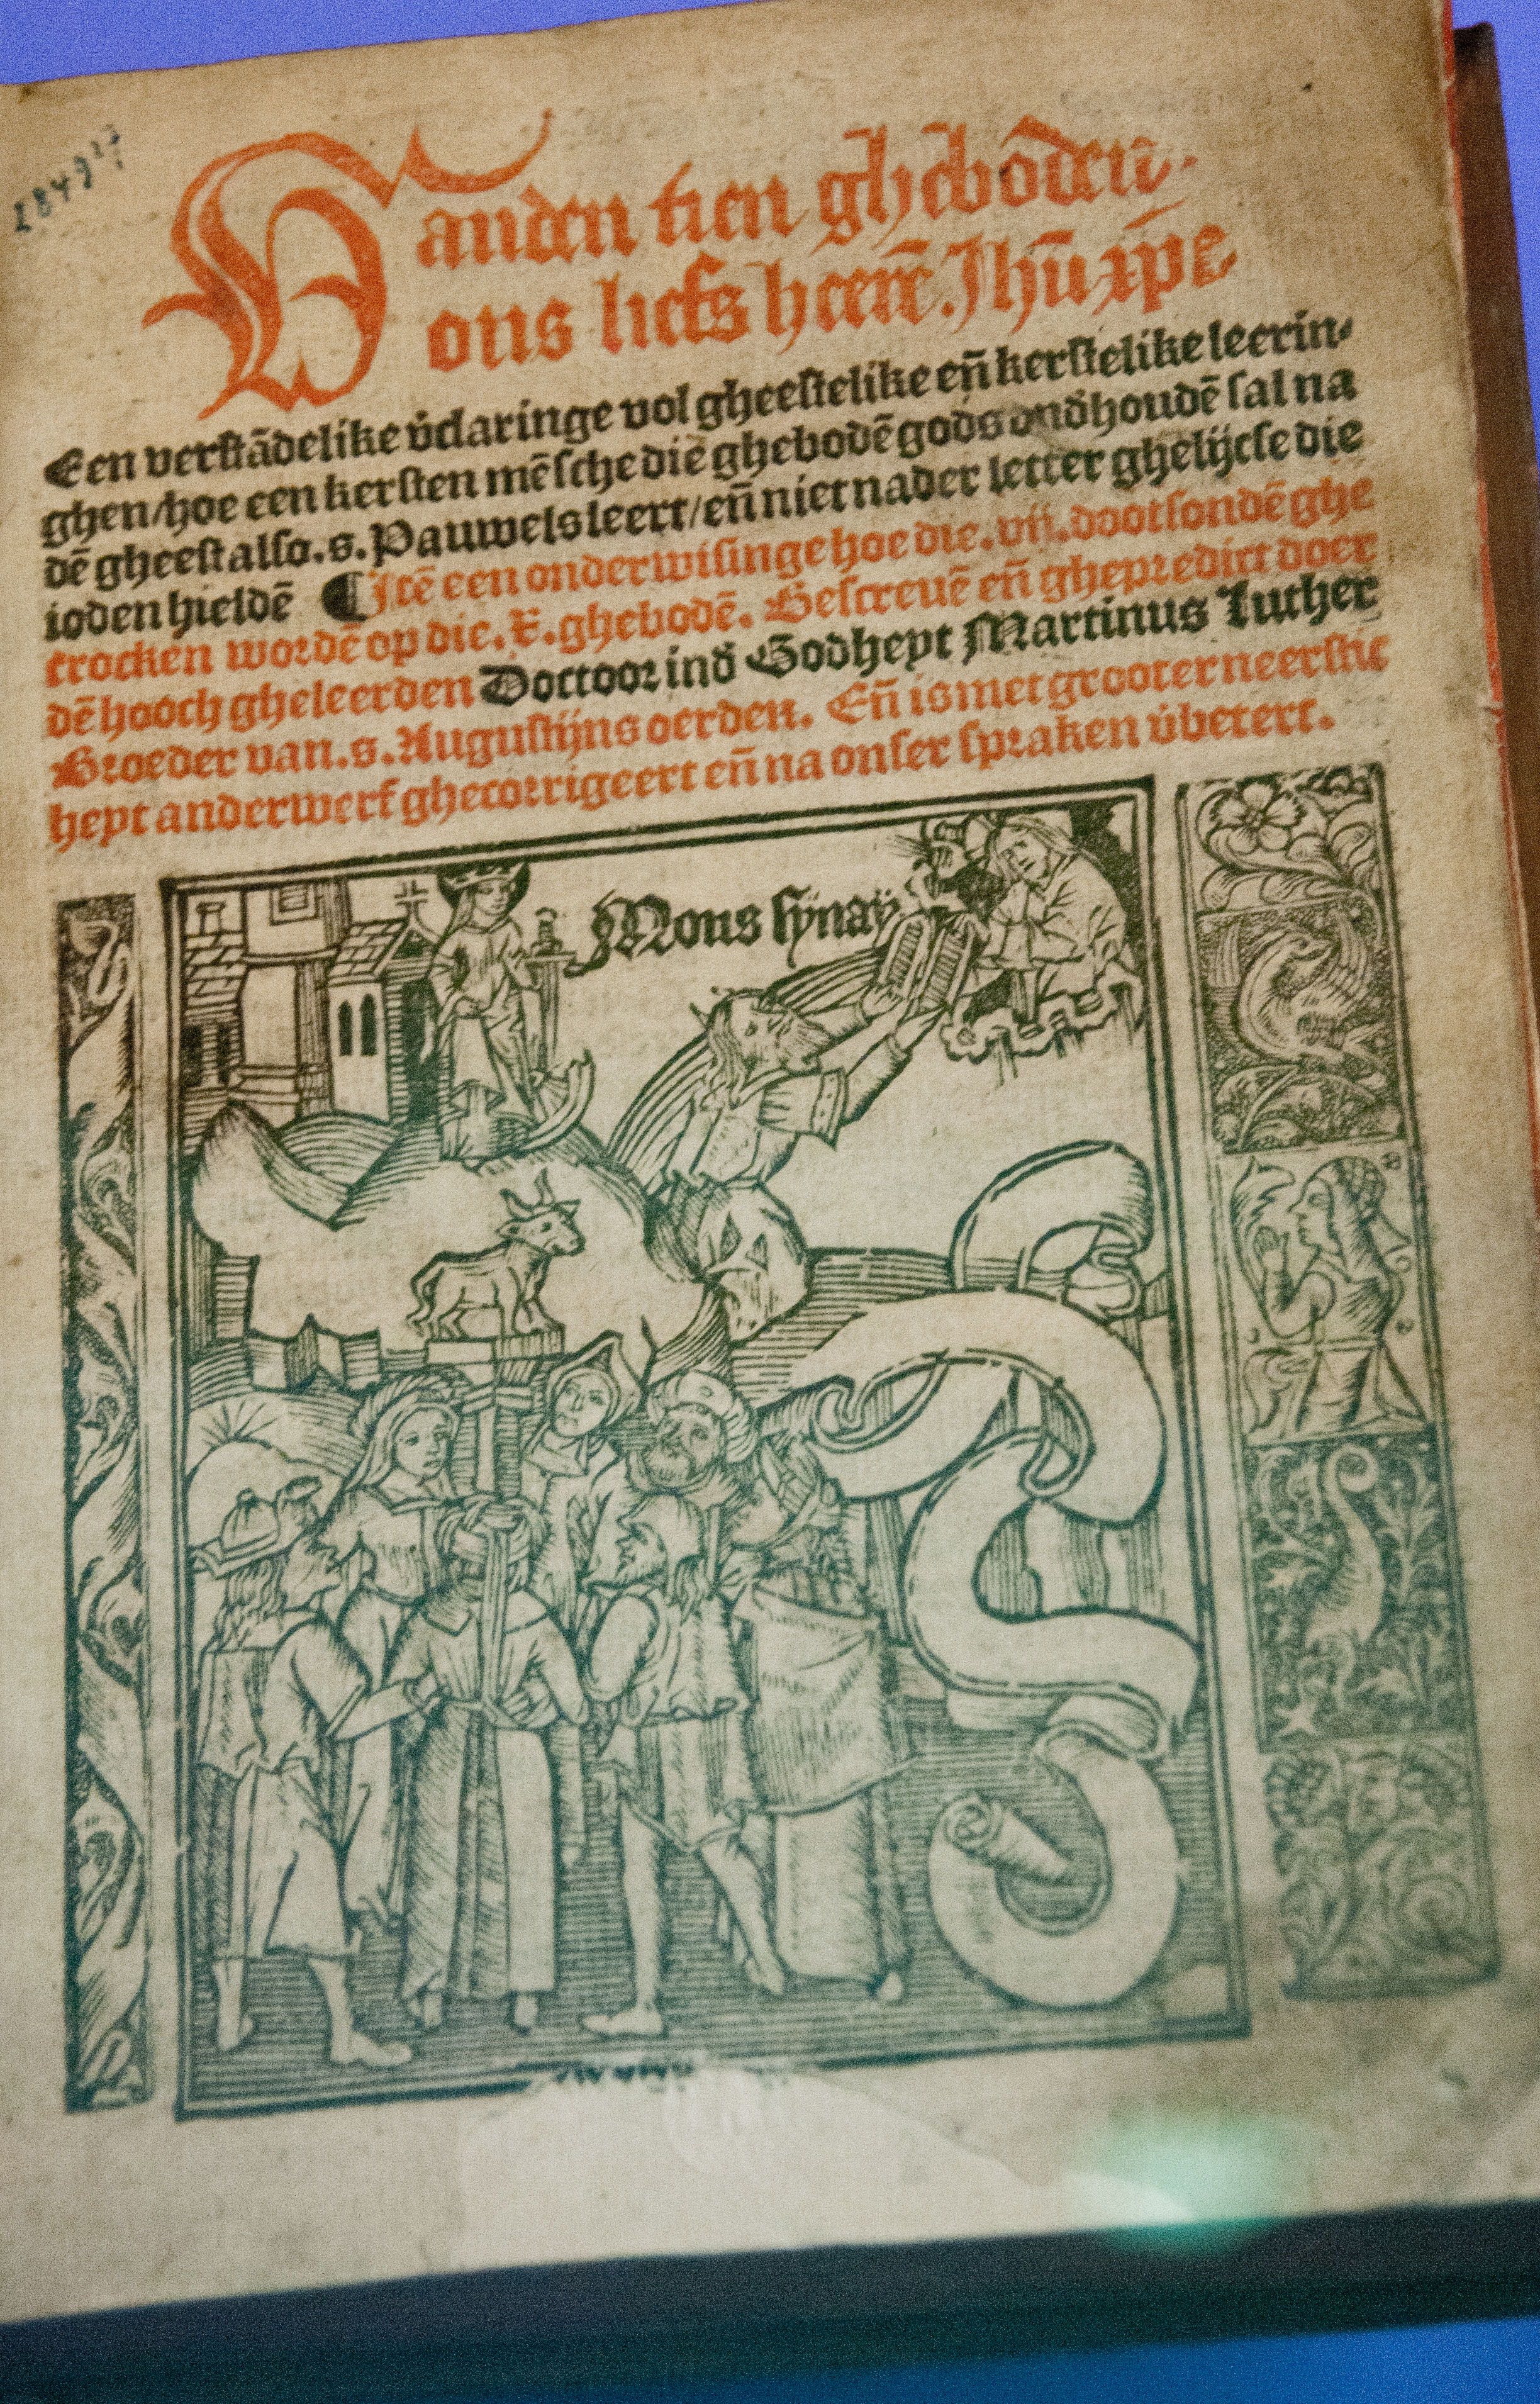 Vanden tien gheboden
ons liefs heerē. Jhū xpē
Een verstādelike v̄claringe vol gheestelike en̄ kerstelike leerin⸗
ghen/hoe een kersten mēsche die ghebodē gods ond̄houdē sal na
dē gheest also.s.Pauwels leert/en̄ niet nader letter ghelijcse die
ioden hieldē ¶ Itē een onderwisinge hoe die.vij.dootsondē ghe
trocken wordē op die.X.ghebodē. Bescreuē en̄ ghepredict doer
dē hooch gheleerden Doctoor ind̄ Godheyt Martinus Luther
Broeder van.s.Augustijns oerden. En̄ is met grooter neerstic
heyt anderwerf ghecorrigeert en̄ na onser spraken v̄betert.
Mons synay